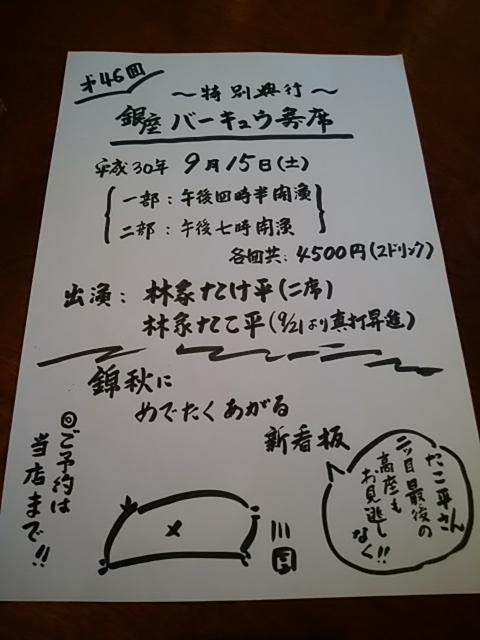 才46回
～特別興行～
銀座バーキュウ寄席
平成30年 9月15日(土)
一部：午後四時半開演
二部：午後七時開演
各回共：4500円(2ドリンク)
出演：林家たけ平(二席)
林家たこ平(9/21より真打昇進)
錦秋に
めでたくあがる
新看板
◎ご予約は
当店まで!!
たこ平さん
二ッ目最後の
高座も
お見逃し
なく!!